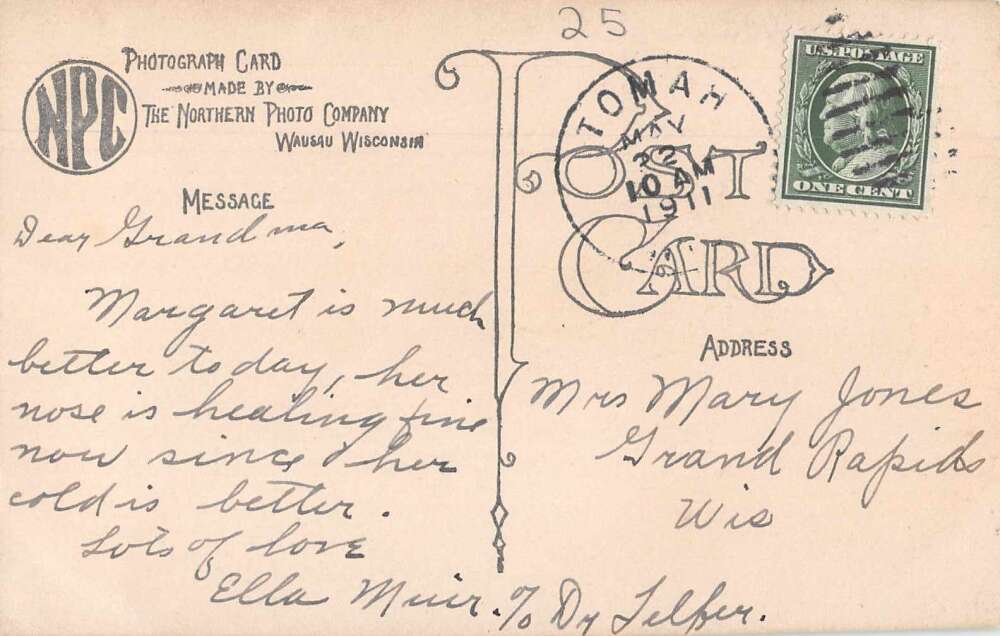 25
PHOTOGRAPH CARD
MADE BY
THE NORTHERN PHOTO COMPANY
WAUSAU WISCONSIN
NPC
POST CARD
TOMAH
MAY
22
10 AM
1911
U.S. POSTAGE
ONE CENT
MESSAGE
Dear Grandma,
Margaret is much
better today, her
nose is healing fine
now since her
cold is better.
Lots of love
Ella Muir. c/o Dr Telfer.
ADDRESS
Mrs Mary Jones
Grand Rapids
Wis